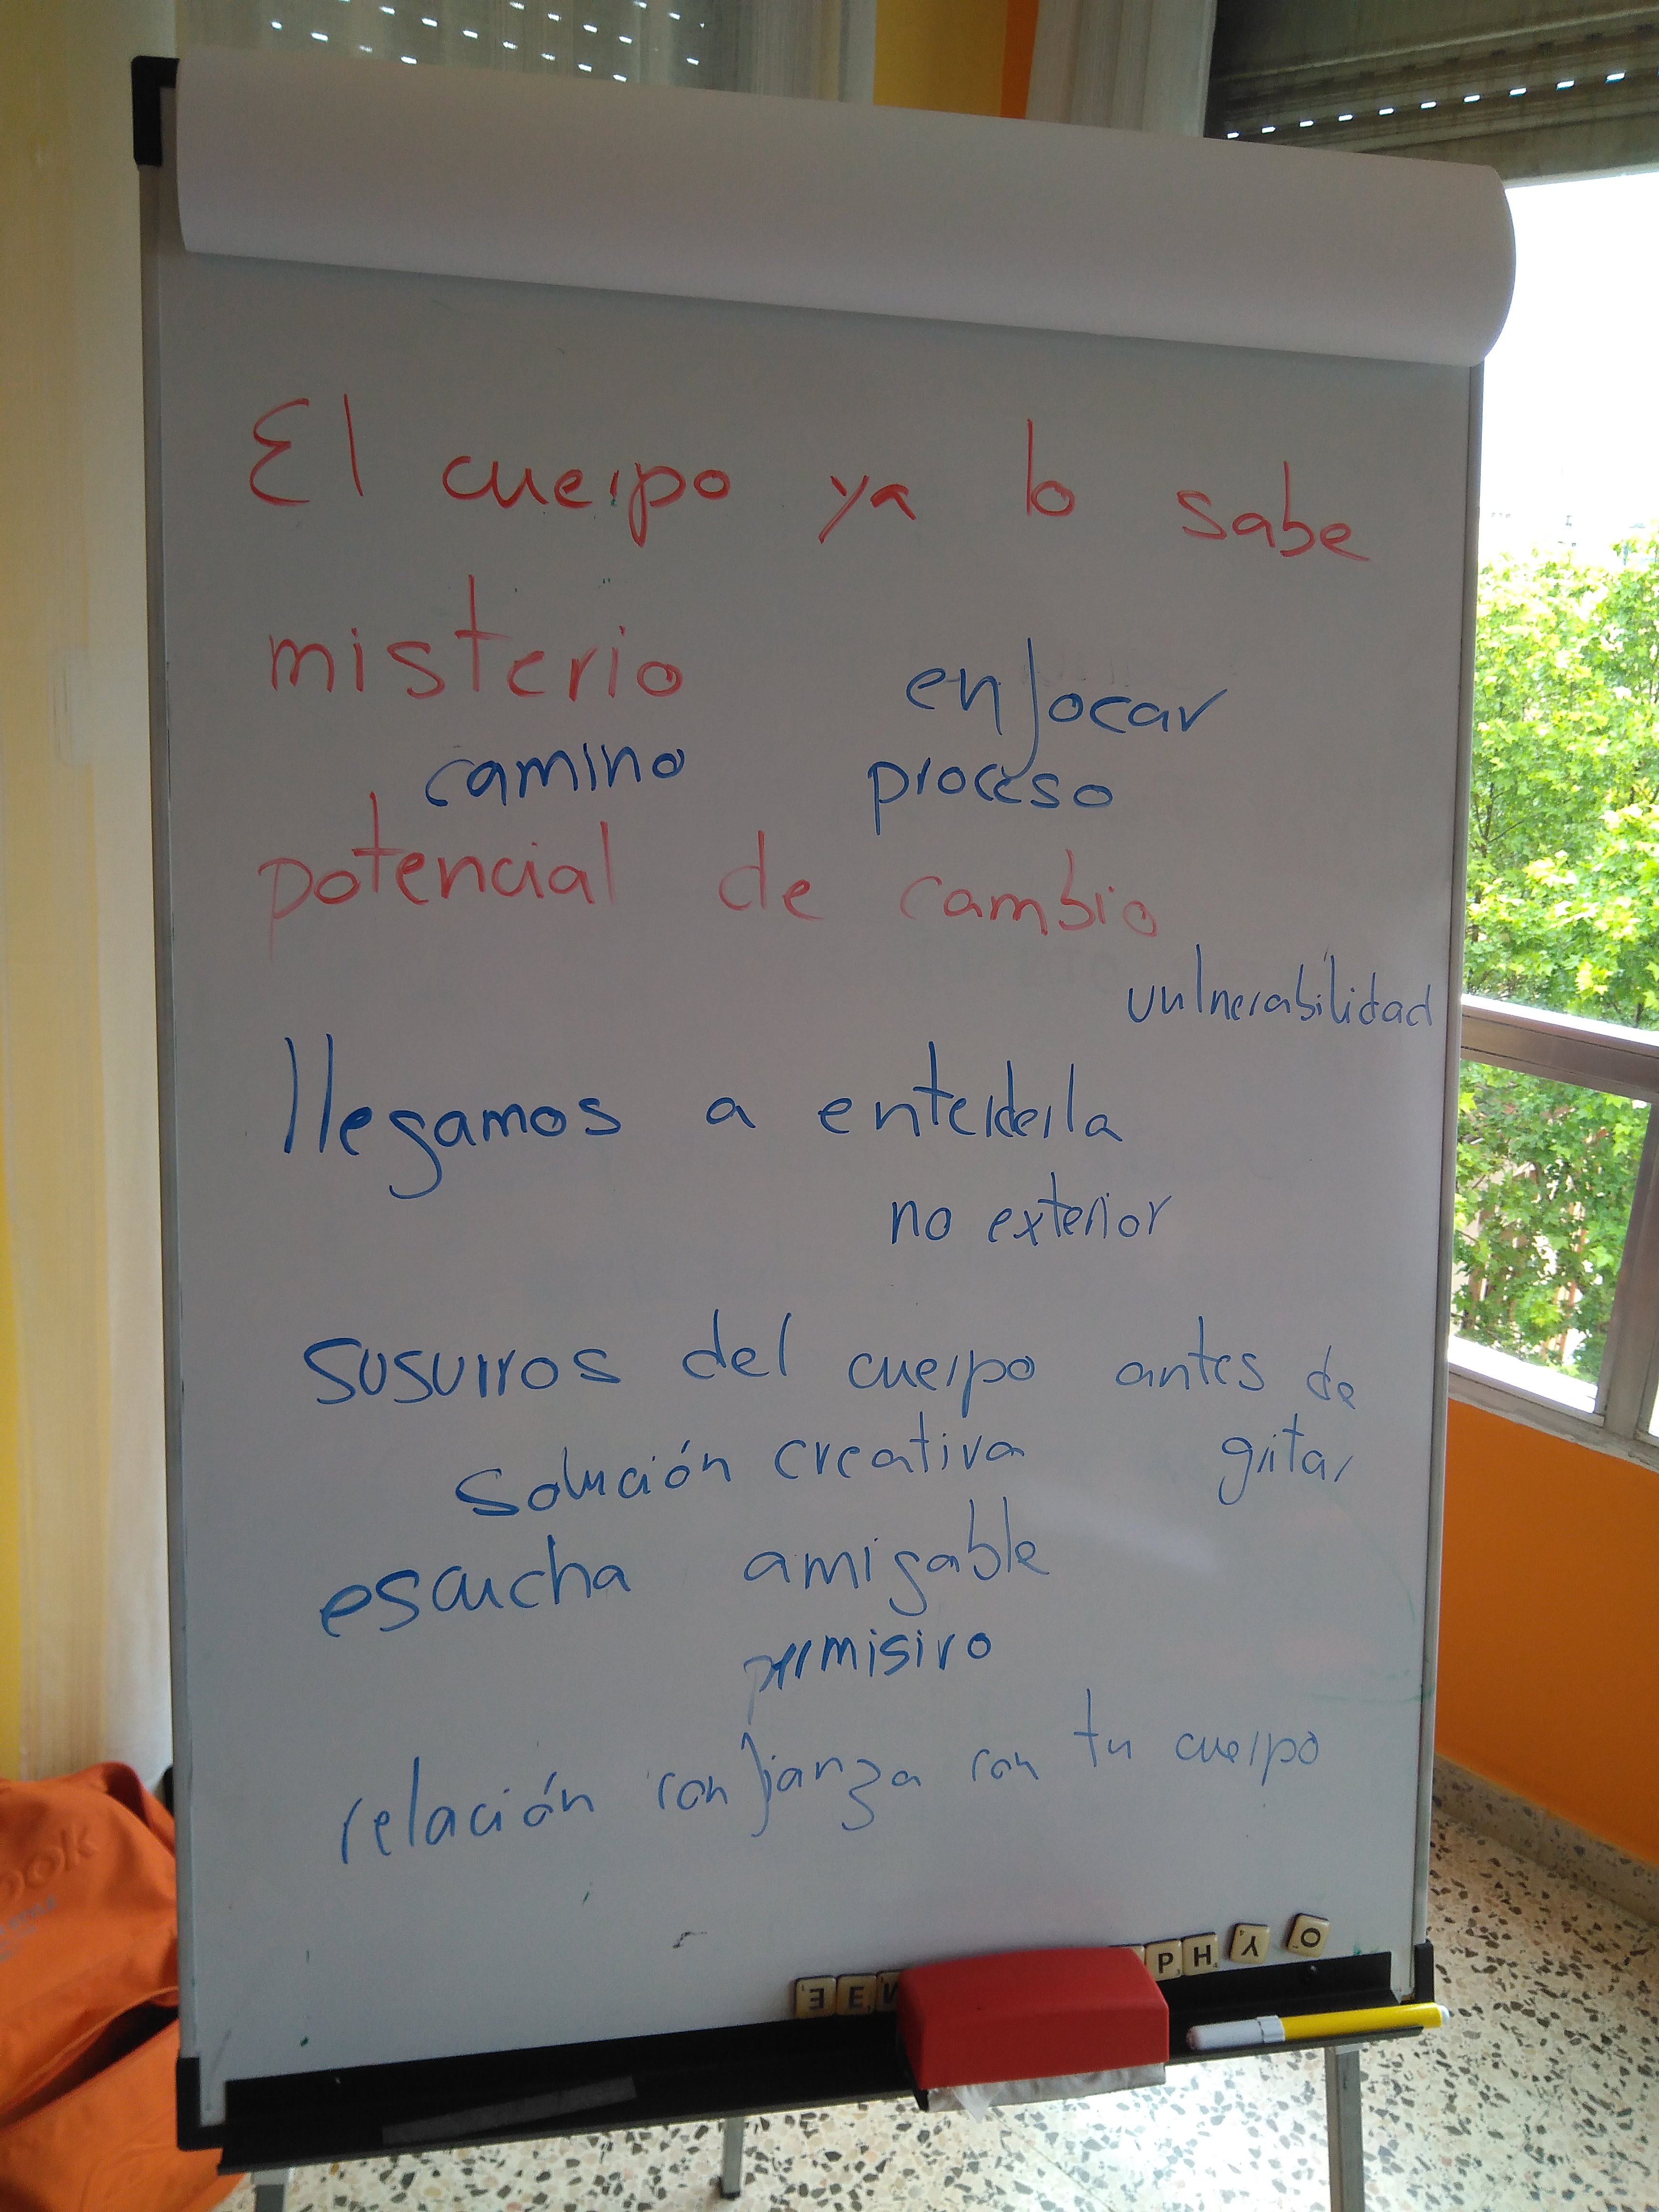 El cuerpo ya lo sabe
misterio enfocar
camino proceso
potencial de cambio
vulnerabilidad
llegamos a entenderla
no exterior
susurros del cuerpo antes de
solución creativa gritar
escucha amigable
permisivo
relación confianza con tu cuerpo
E E
P H Y O
ook